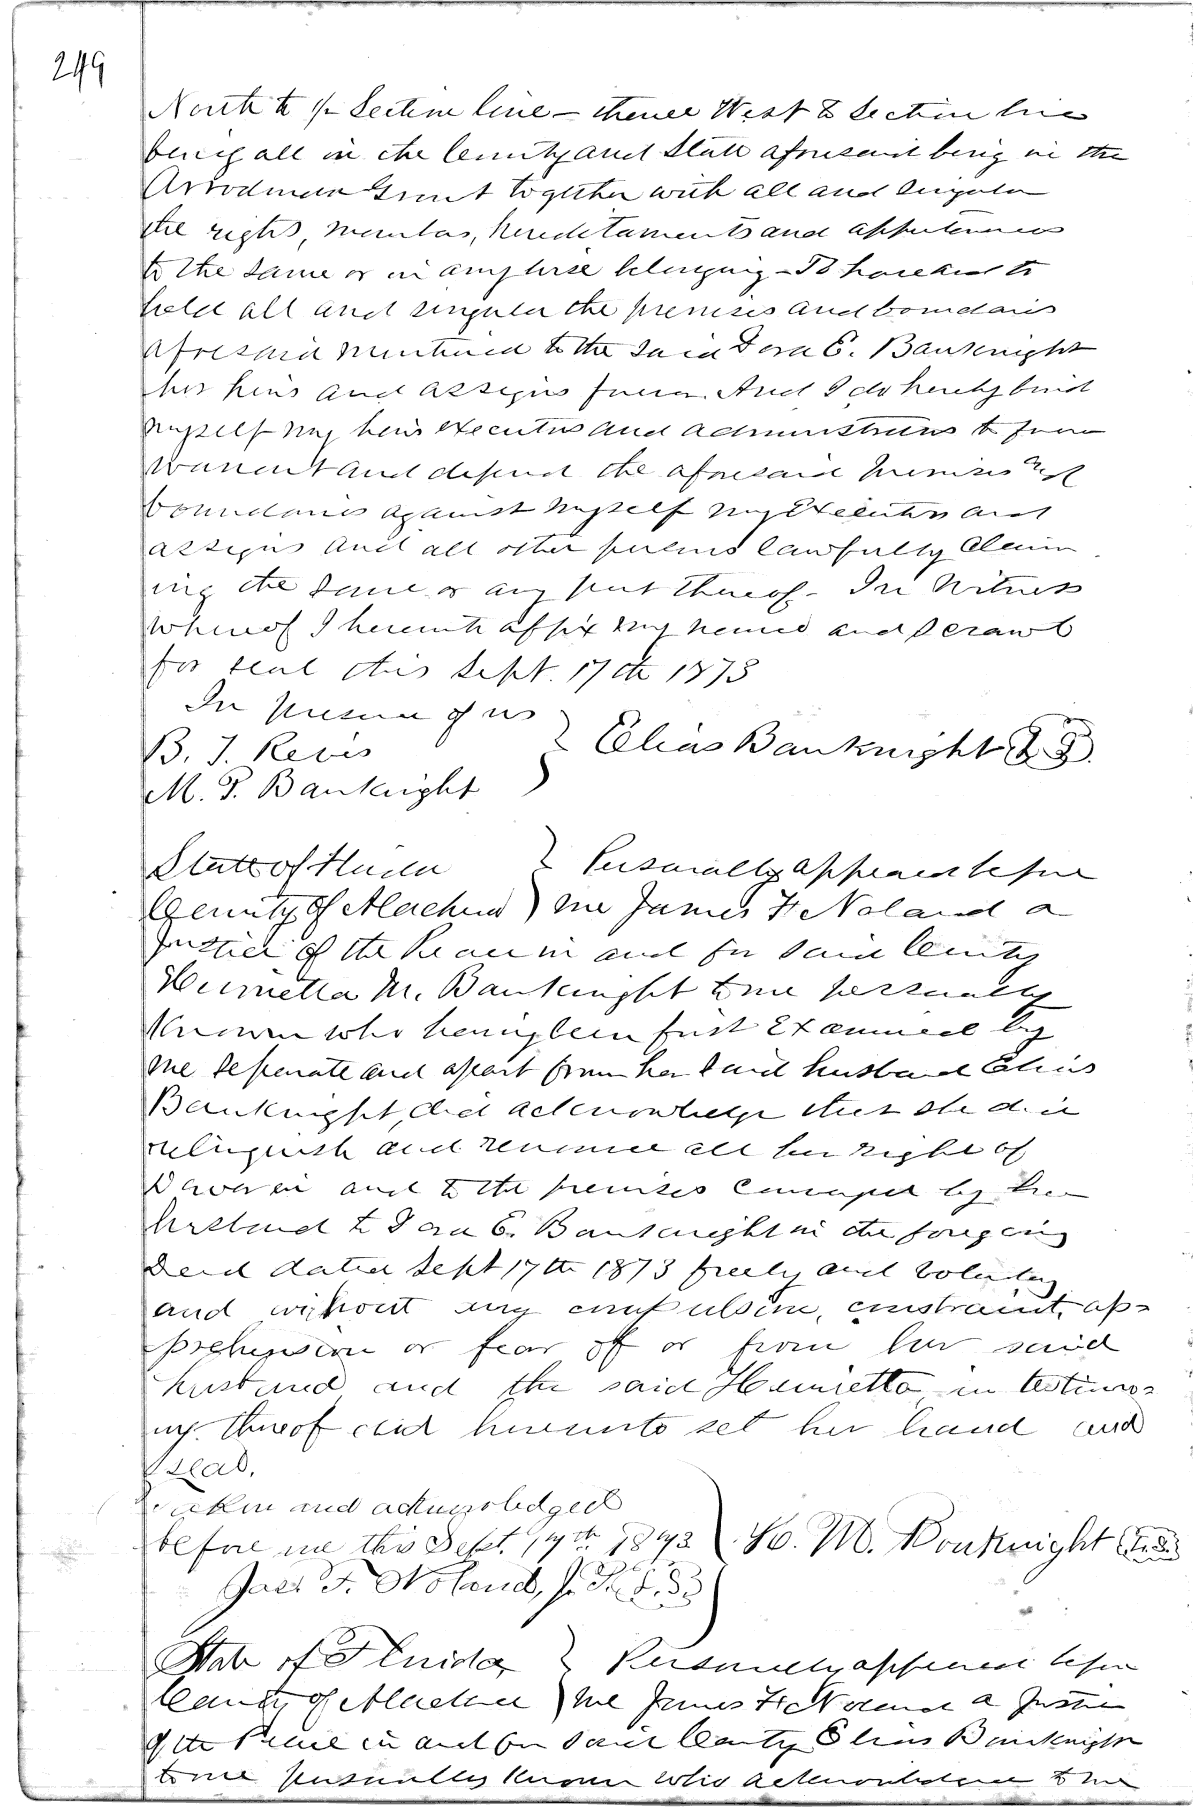 249
North to ½ Section line – thence West to Section line
being all in the County and State aforesaid being in the
Arredondo Grant together with all and singular
the rights, members, hereditaments and appurtenances
to the same or in anywise belonging – To have and to
hold all and singular the premises and boundaries
aforesaid mentioned to the said Dora E. Bauknight
her heirs and assigns forever. And I do hereby bind
myself my heirs executors and administrators to forever
warrant and defend the aforesaid premises and
boundaries against myself my Executors and
assigns and all other persons lawfully Claim-
ing the same or any part thereof – In Witness
Whereof I hereunto affix my name and Scrawl
for seal this Sept. 17th 1873
In presence of us
B. J. Revis } Elias Bauknight L.S.
M. P. Bauknight
State of Florida } Personally appeared before
County of Alachua ) me James F. Noland a
Justice of the Peace in and for said County
Henrietta M. Bauknight to me personally
Known who having been first Examined by
me separate and apart from her said husband Elias
Bauknight, did acknowledge that she did
relinquish and renounce all her right of
Dower in and to the premises conveyed by her
husband to Dora E. Bauknight in the foregoing
Deed dated Sept 17th 1873 freely and voluntary
and without any compulsion, constraint, ap=
prehension or fear off or from her said
husband and the said Henrietta in testimo=
ny thereof did hereunto set her hand and
seal.
Taken and acknowledged
before me this Sept. 17th 1873 } H. M. Bouknight L.S.
Jas. F. Noland, J. P. L.S.
State of Florida } Personally appeared before
County of Alachua ) me James F. Noland a Justice
of the Peace in and for said County Elias Bauknight
to me personally known who acknowledged to me